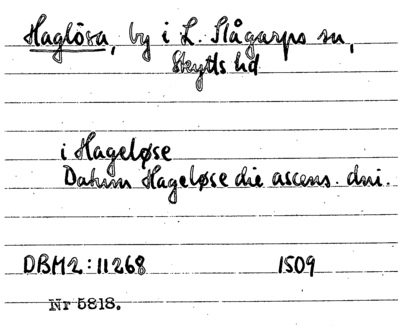 Haglösa, by i L. Slågarps sn,
Skytts hd
i Hageløse
Datum Hageløse die ascens. dni.
DBM2:11268 1509
Nr 5818.